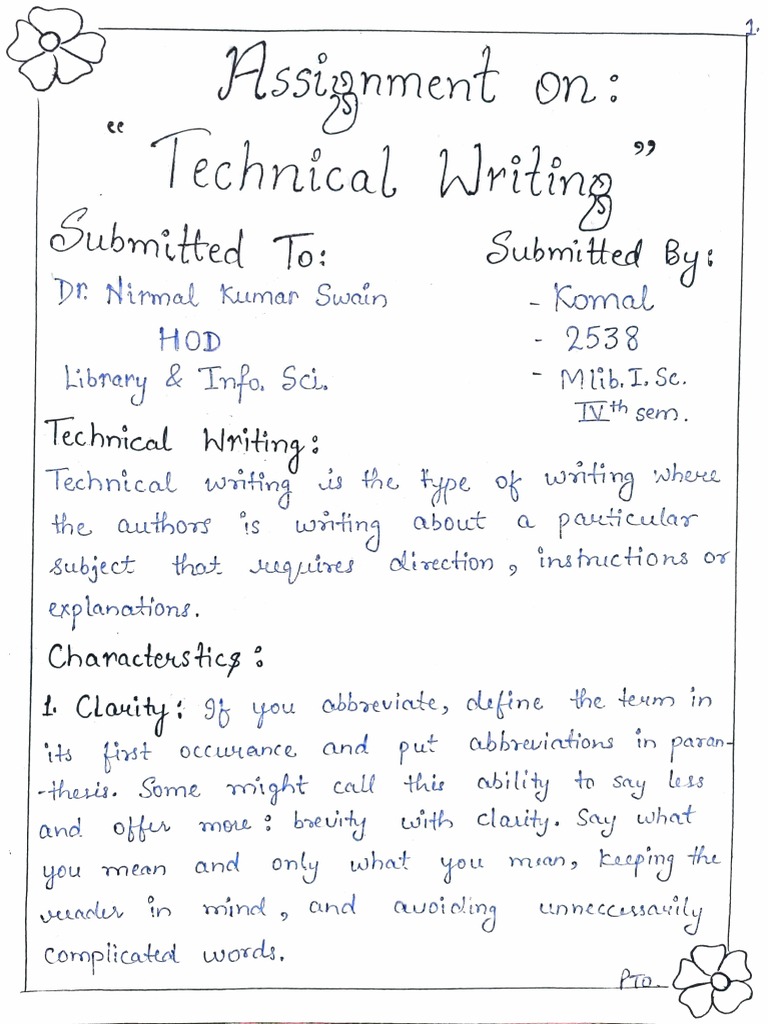 1.
Assignment on:
"Technical Writing"
Submitted To: Submitted By:
Dr. Nirmal Kumar Swain - Komal
HOD - 2538
Library & Info. Sci. - Mlib. I. Sc.
IVth sem.
Technical Writing:
Technical writing is the type of writing where
the authors is writing about a particular
subject that requires direction, instructions or
explanations.
Characterstics:
1. Clarity: If you abbreviate, define the term in
its first occurance and put abbreviations in paran-
-thesis. Some might call this ability to say less
and offer more: brevity with clarity. Say what
you mean and only what you mean, keeping the
reader in mind, and avoiding unneccessarily
complicated words.
PTO.